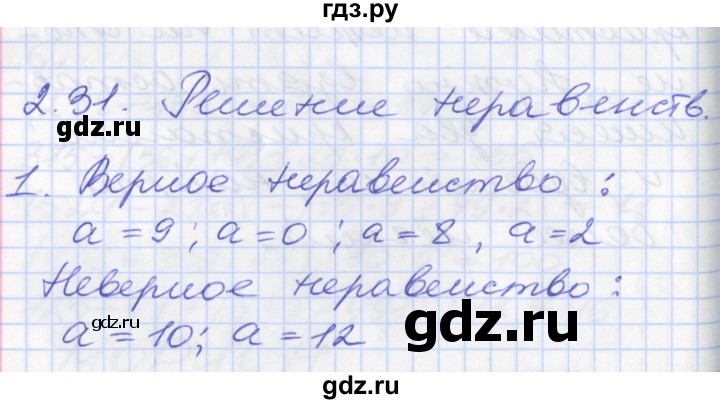 гдз.ру
2.31. Решение неравенств.
gdz.ru
1. Верное неравенство:
a = 9; a = 0; a = 8, a = 2
Неверное неравенство:
gdz.ru
gdz.ru
a = 10; a = 12
gdz.ru